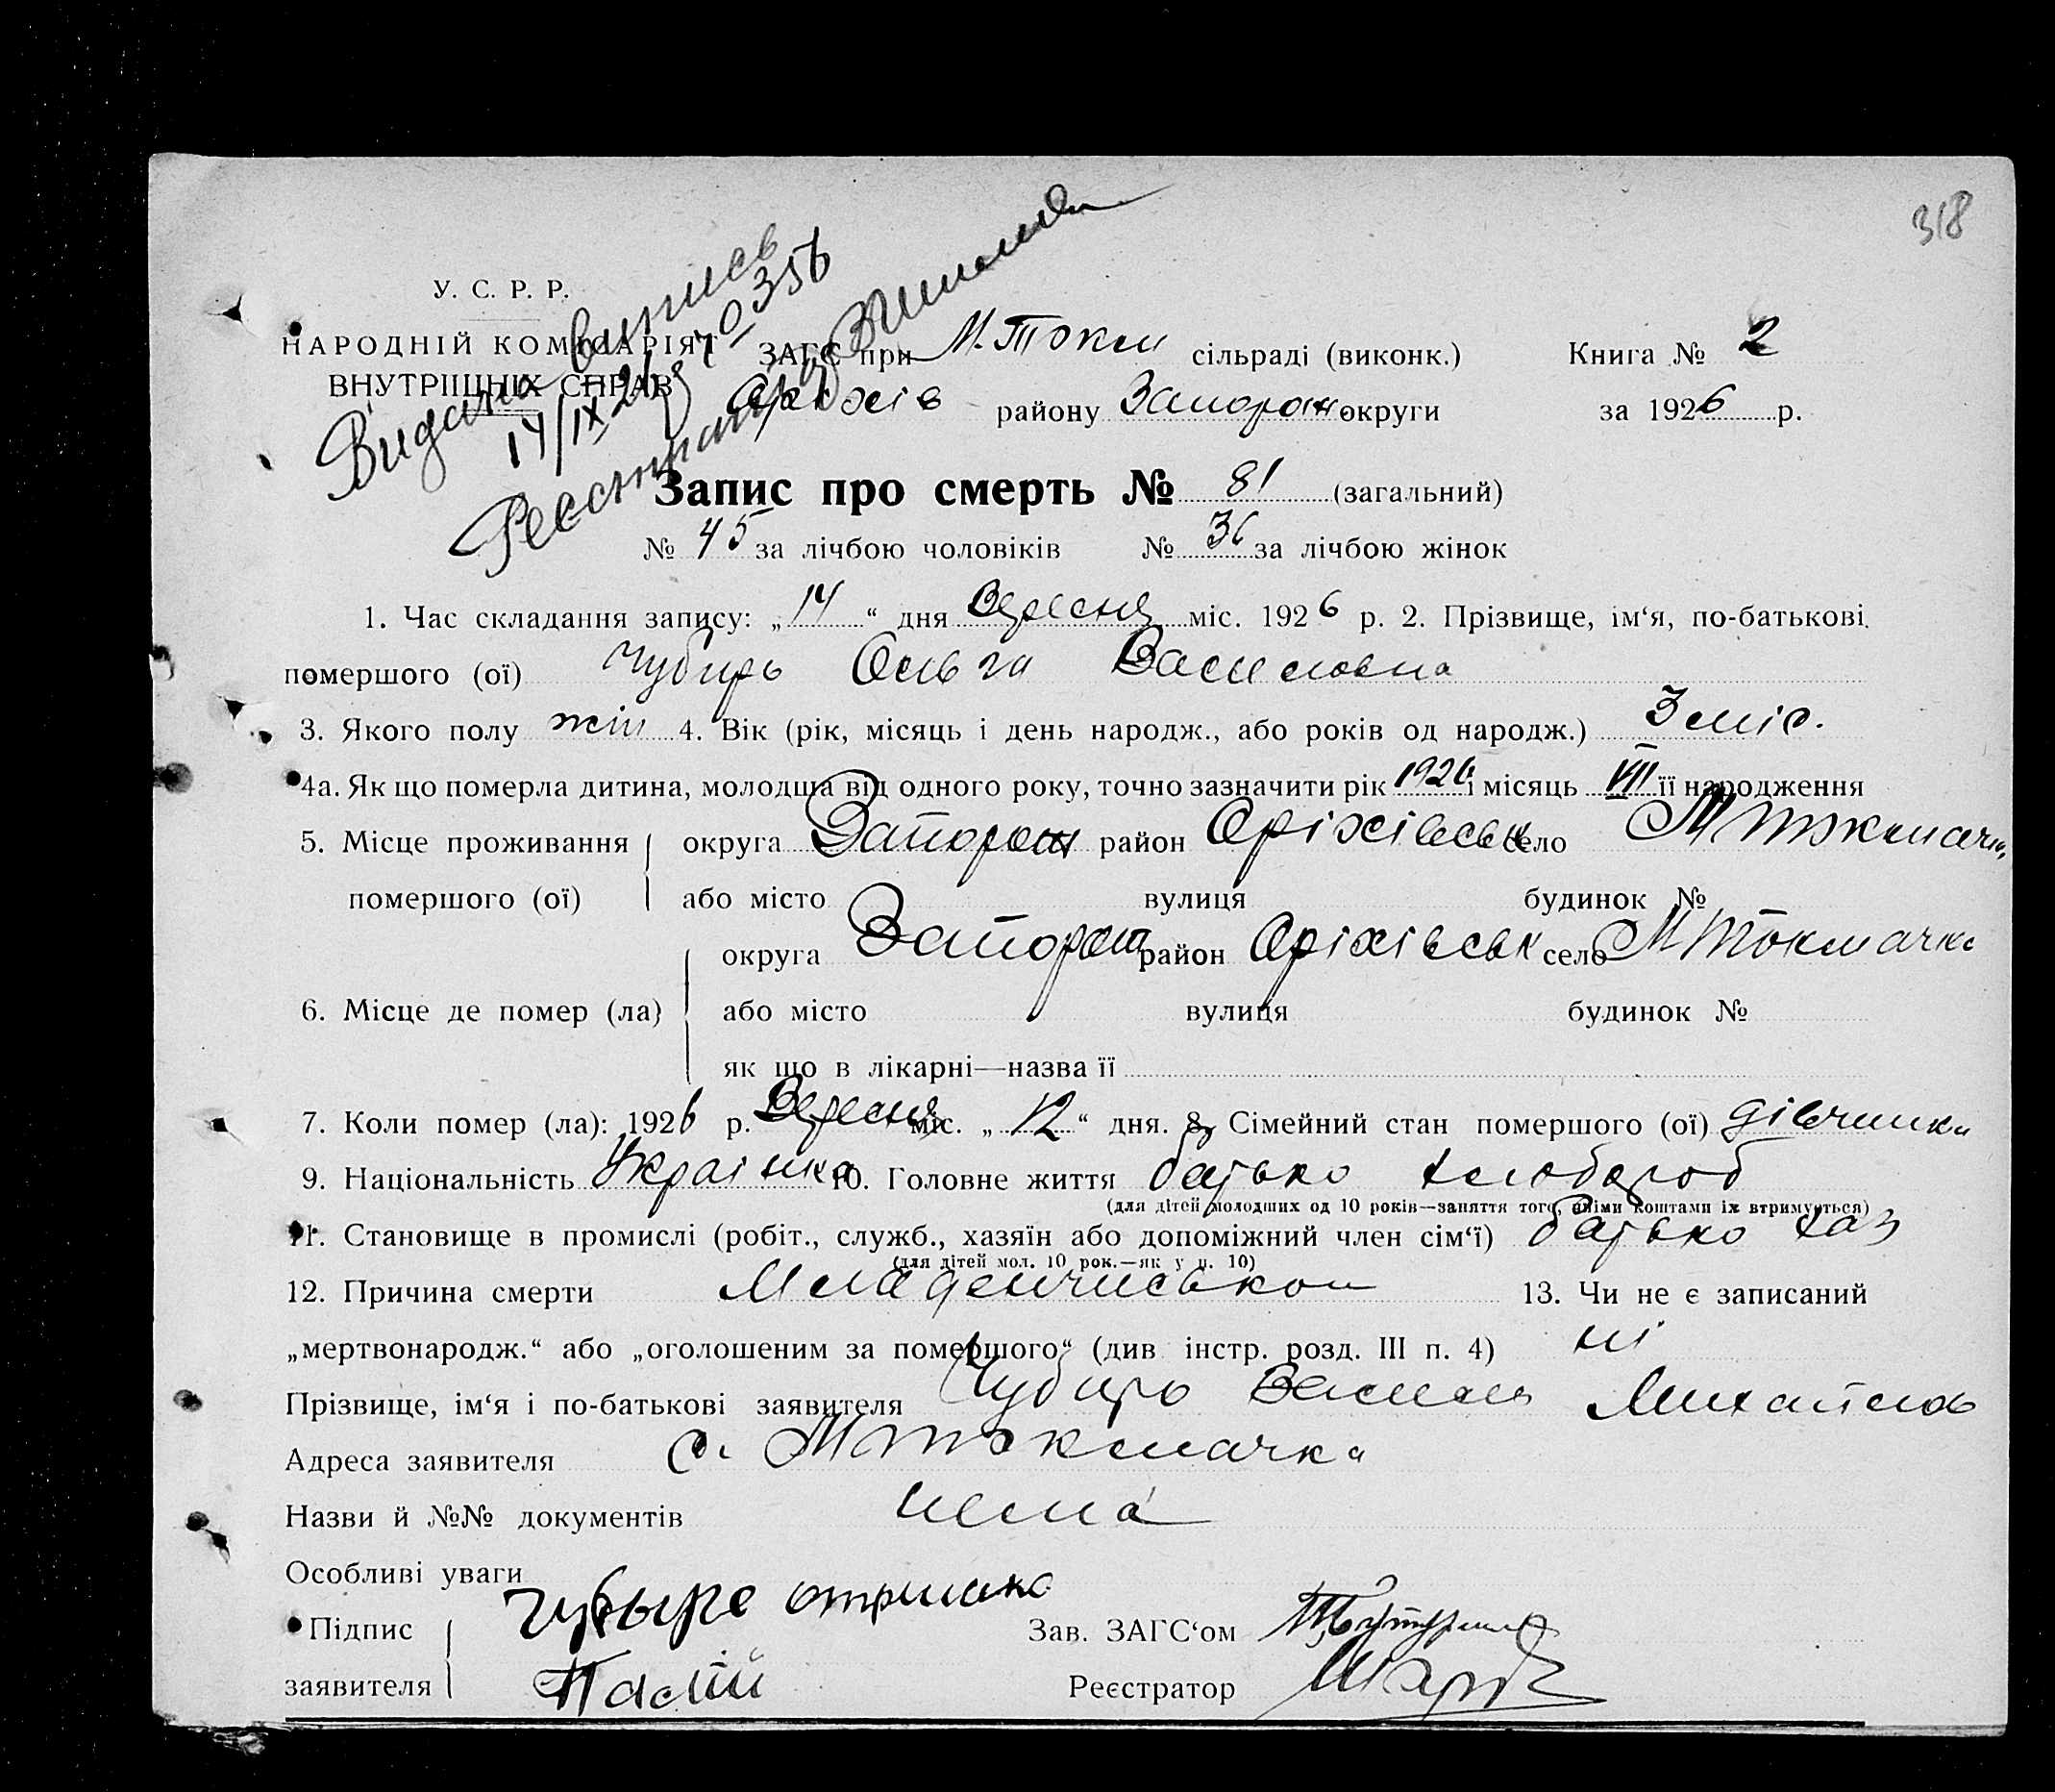 318
У. С. Р. Р.
НАРОДНІЙ КОМІСАРІЯТ
ВНУТРІШНІХ СПРАВ
Видана випись
14/IX 26 р 70356
ЗАГС при М. Токм сільраді (виконк.) Книга № 2
Оріхів району Запорож округи за 1926 р.
Запис про смерть № 81 (загальний)
№ 45 за лічбою чоловіків № 36 за лічбою жінок
1. Час складання запису: „14“ дня Вересня міс. 1926 р. 2. Прізвище, ім‘я, по-батькові
помершого (ої) Чубирь Ольга Василовна
3. Якого полу жін 4. Вік (рік, місяць і день народж., або років од народж.) 3 міс.
4а. Як що померла дитина, молодша від одного року, точно зазначити рік 1926 і місяць VII її народження
5. Місце проживання округа Запорож район Оріхівськ село М Токмачка
помершого (ої) або місто вулиця будинок №
округа Запорож район Оріхівськ село М Токмачка
6. Місце де помер (ла) або місто вулиця будинок №
як що в лікарні—назва її
7. Коли помер (ла): 1926 р. Вересня міс. „12“ дня. 8. Сімейний стан помершого (ої) дівчинка
9. Національність Украінка 10. Головне життя батько хлібороб
(для дітей молодших од 10 років—заняття того, чиїми коштами їх втримується)
11. Становище в промислі (робіт., служб., хазяїн або допоміжний член сім‘ї) батько хаз
(для дітей мол. 10 рок.—як у п. 10)
12. Причина смерти Младенчиською 13. Чи не є записаний
„мертвонародж.“ або „оголошеним за помершого“ (див інстр. розд. III п. 4) ні
Прізвище, ім‘я і по-батькові заявителя Чубирь Василь Михайлов
Адреса заявителя с. М Токмачка
Назви й №№ документів нема
Особливі уваги
Підпис Чубыре Зав. ЗАГС‘ом
заявителя Палій Реєстратор